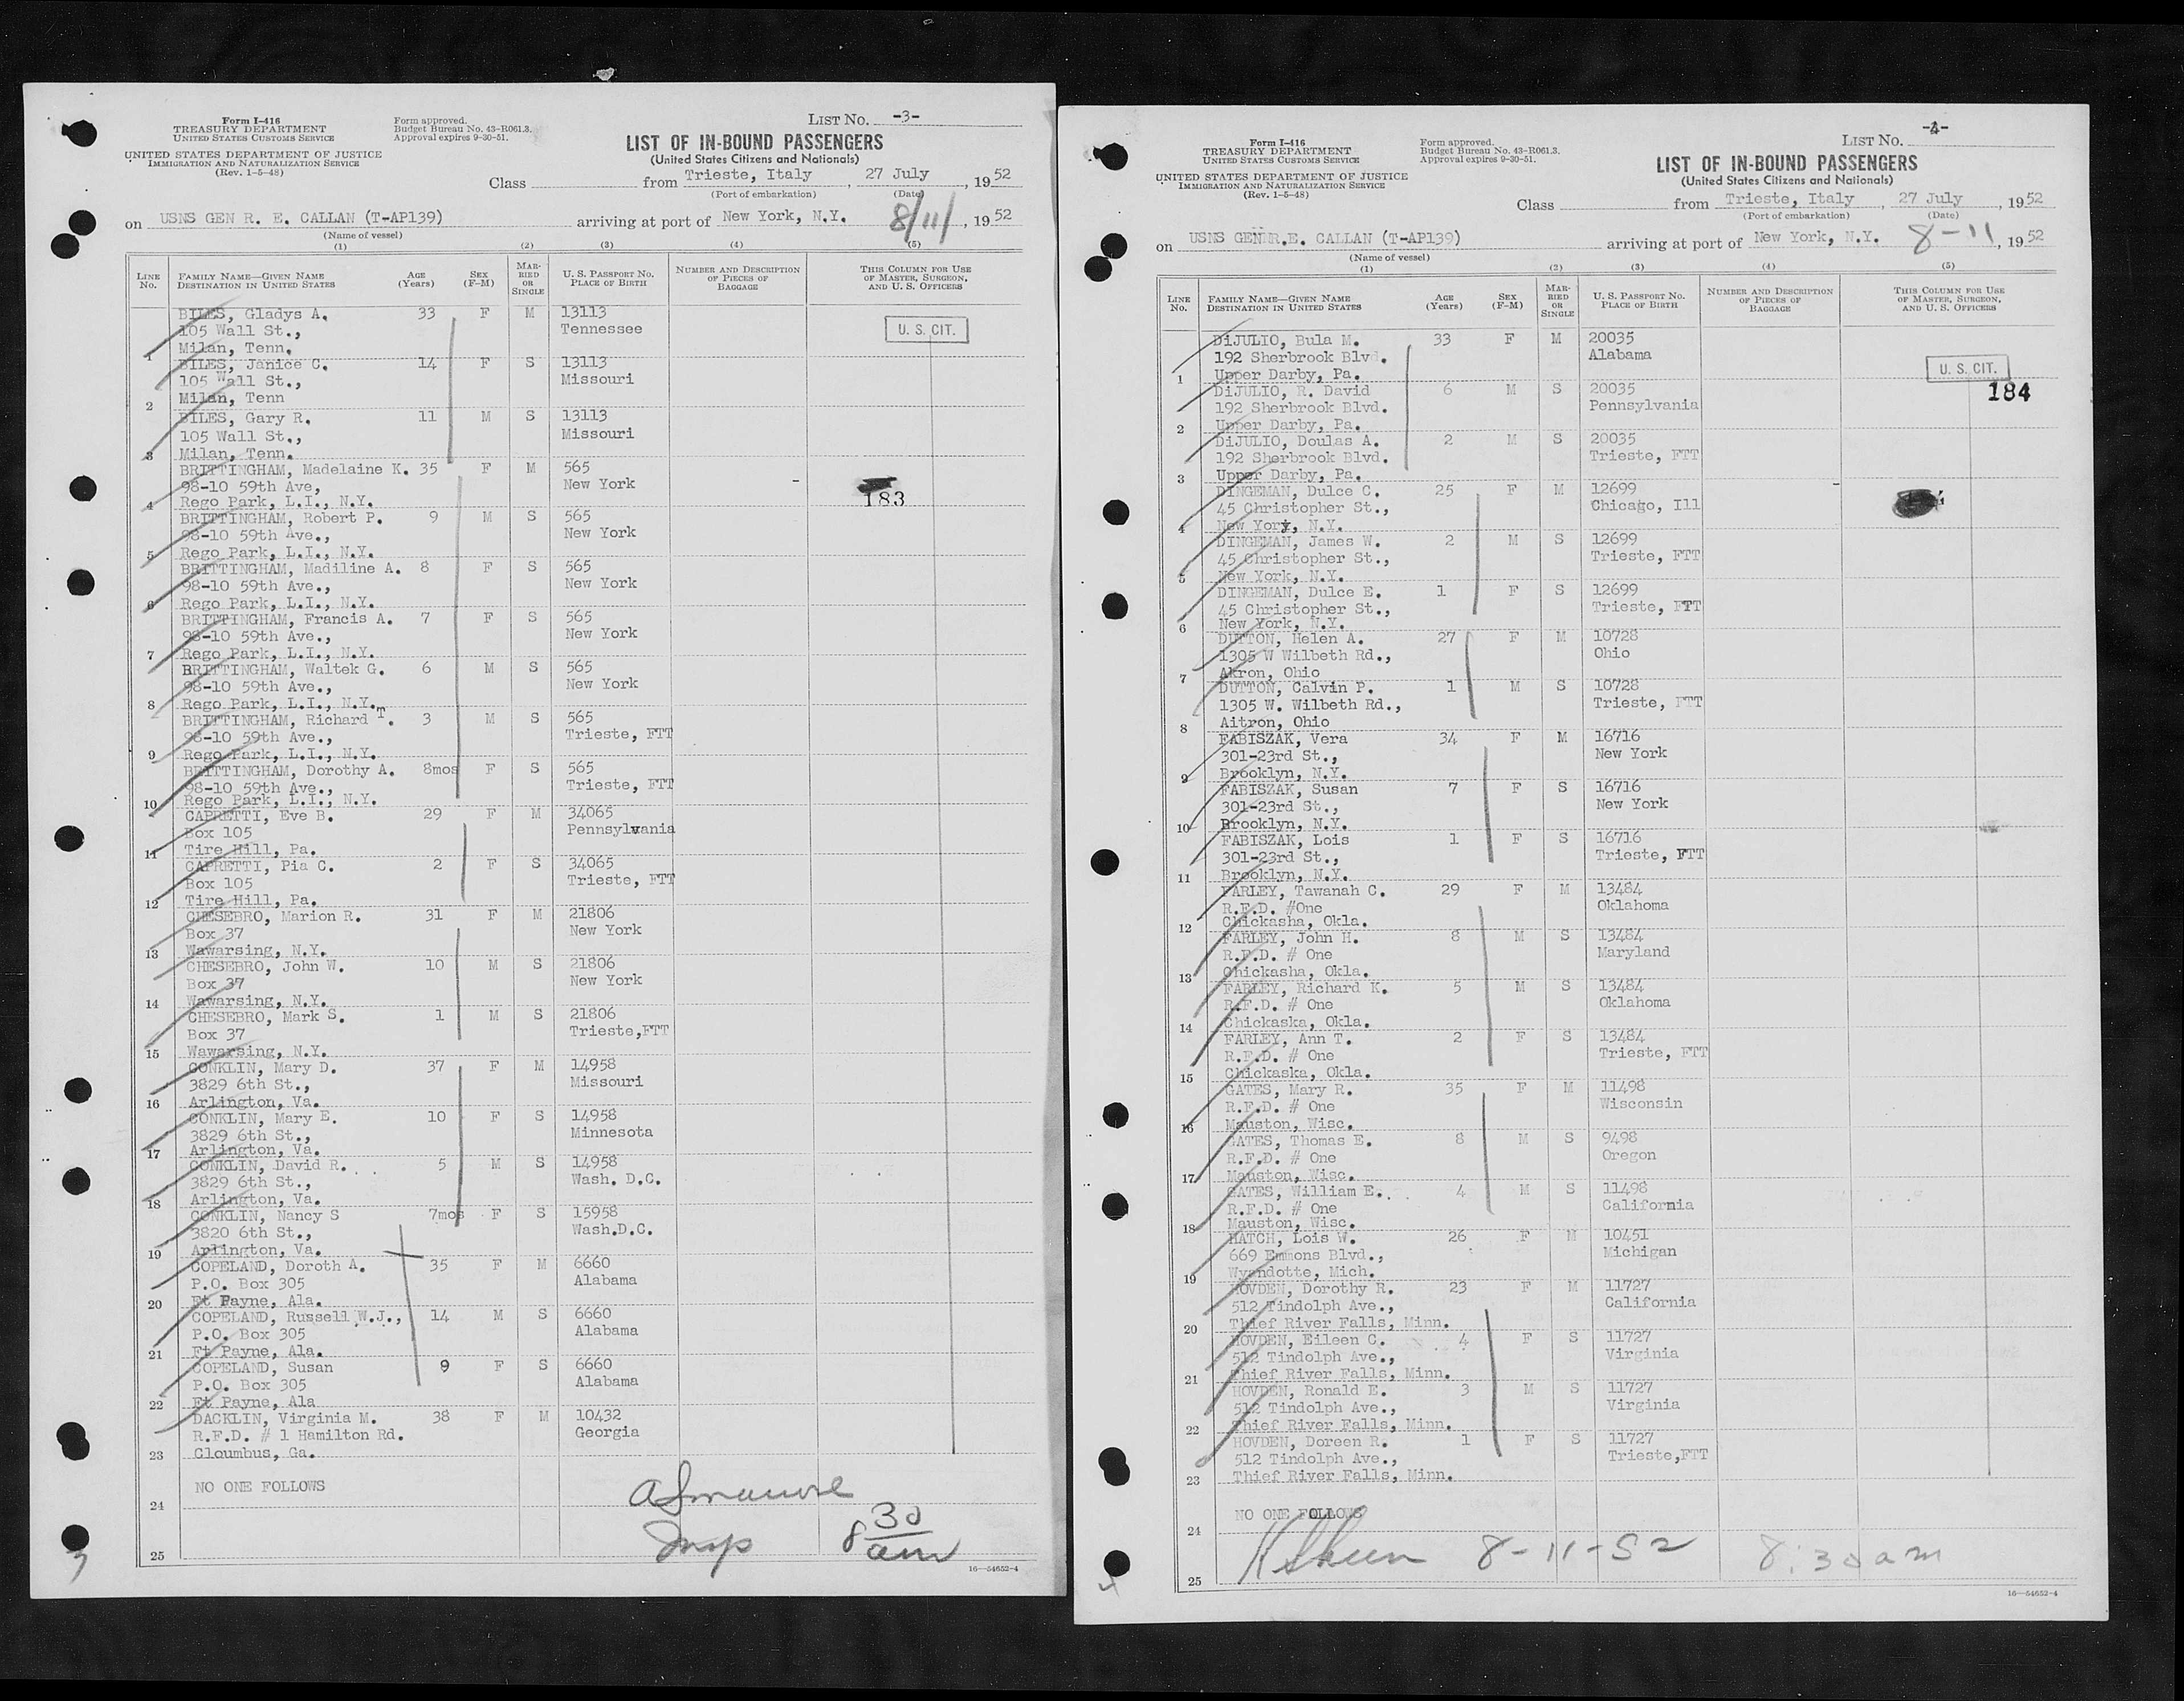 Form I-416
TREASURY DEPARTMENT
UNITED STATES CUSTOMS SERVICE
UNITED STATES DEPARTMENT OF JUSTICE
IMMIGRATION AND NATURALIZATION SERVICE
(Rev. 1-5-48)
Form approved.
Budget Bureau No. 43-R061.3.
Approval expires 9-30-51.
LIST No. -3-
LIST OF IN-BOUND PASSENGERS
(United States Citizens and Nationals)
Class from Trieste, Italy, 27 July, 1952
(Port of embarkation) (Date)
on USNS GEN R. E. CALLAN (T-AP139) arriving at port of New York, N.Y. 8/11/, 1952
(Name of vessel)
(1) (2) (3) (4) (5)
LINE No. FAMILY NAME—GIVEN NAME DESTINATION IN UNITED STATES AGE (Years) SEX (F-M) MARRIED OR SINGLE U. S. PASSPORT No. PLACE OF BIRTH NUMBER AND DESCRIPTION OF PIECES OF BAGGAGE THIS COLUMN FOR USE OF MASTER, SURGEON, AND U. S. OFFICERS
BILES, Gladys A. 33 F M 13113
105 Wall St., Tennessee U. S. CIT.
1 Milan, Tenn.
BILES, Janice C. 14 F S 13113
105 Wall St., Missouri
2 Milan, Tenn
BILES, Gary R. 11 M S 13113
105 Wall St., Missouri
3 Milan, Tenn.
BRITTINGHAM, Madelaine K. 35 F M 565
98-10 59th Ave, New York
4 Rego Park, L.I., N.Y. 183
BRITTINGHAM, Robert P. 9 M S 565
98-10 59th Ave., New York
5 Rego Park, L.I., N.Y.
BRITTINGHAM, Madiline A. 8 F S 565
98-10 59th Ave., New York
6 Rego Park, L.I., N.Y.
BRITTINGHAM, Francis A. 7 F S 565
98-10 59th Ave., New York
7 Rego Park, L.I., N.Y.
BRITTINGHAM, Waltek G. 6 M S 565
98-10 59th Ave., New York
8 Rego Park, L.I., N.Y.
BRITTINGHAM, Richard T. 3 M S 565
98-10 59th Ave., Trieste, FTT
9 Rego Park, L.I., N.Y.
BRITTINGHAM, Dorothy A. 8mos F S 565
98-10 59th Ave., Trieste, FTT
10 Rego Park, L.I., N.Y.
CAPRETTI, Eve B. 29 F M 34065
Box 105 Pennsylvania
11 Tire Hill, Pa.
CAPRETTI, Pia C. 2 F S 34065
Box 105 Trieste, FTT
12 Tire Hill, Pa.
CHESEBRO, Marion R. 31 F M 21806
Box 37 New York
13 Wawarsing, N.Y.
CHESEBRO, John W. 10 M S 21806
Box 37 New York
14 Wawarsing, N.Y.
CHESEBRO, Mark S. 1 M S 21806
Box 37 Trieste,FTT
15 Wawarsing, N.Y.
CONKLIN, Mary D. 37 F M 14958
3829 6th St., Missouri
16 Arlington, Va.
CONKLIN, Mary E. 10 F S 14958
3829 6th St., Minnesota
17 Arlington, Va.
CONKLIN, David R. 5 M S 14958
3829 6th St., Wash. D.C.
18 Arlington, Va.
CONKLIN, Nancy S 7mos F S 15958
3820 6th St., Wash.D.C.
19 Arlington, Va.
COPELAND, Doroth A. 35 F M 6660
P.O. Box 305 Alabama
20 Ft Payne, Ala.
COPELAND, Russell W.J., 14 M S 6660
P.O. Box 305 Alabama
21 Ft Payne, Ala.
COPELAND, Susan 9 F S 6660
P.O. Box 305 Alabama
22 Ft Payne, Ala
DACKLIN, Virginia M. 38 F M 10432
R.F.D. # 1 Hamilton Rd. Georgia
23 Cloumbus, Ga.
NO ONE FOLLOWS
24
Insp 8 30 am
25
16—54652-4
Form I-416
TREASURY DEPARTMENT
UNITED STATES CUSTOMS SERVICE
UNITED STATES DEPARTMENT OF JUSTICE
IMMIGRATION AND NATURALIZATION SERVICE
(Rev. 1-5-48)
Form approved.
Budget Bureau No. 43-R061.3.
Approval expires 9-30-51.
LIST No. -4-
LIST OF IN-BOUND PASSENGERS
(United States Citizens and Nationals)
Class from Trieste, Italy, 27 July, 1952
(Port of embarkation) (Date)
on USNS GEN R.E. CALLAN (T-AP139) arriving at port of New York, N.Y. 8-11, 1952
(Name of vessel)
(1) (2) (3) (4) (5)
LINE No. FAMILY NAME—GIVEN NAME DESTINATION IN UNITED STATES AGE (Years) SEX (F-M) MARRIED OR SINGLE U. S. PASSPORT No. PLACE OF BIRTH NUMBER AND DESCRIPTION OF PIECES OF BAGGAGE THIS COLUMN FOR USE OF MASTER, SURGEON, AND U. S. OFFICERS
DiJULIO, Bula M. 33 F M 20035
192 Sherbrook Blvd. Alabama
1 Upper Darby, Pa. U. S. CIT.
DiJULIO, R. David 6 M S 20035 184
192 Sherbrook Blvd. Pennsylvania
2 Upper Darby, Pa.
DiJULIO, Doulas A. 2 M S 20035
192 Sherbrook Blvd. Trieste, FTT
3 Upper Darby, Pa.
DINGEMAN, Dulce C. 25 F M 12699
45 Christopher St., Chicago, Ill
4 New York, N.Y.
DINGEMAN, James W. 2 M S 12699
45 Christopher St., Trieste, FTT
5 New York, N.Y.
DINGEMAN, Dulce E. 1 F S 12699
45 Christopher St., Trieste, FTT
6 New York, N.Y.
DUTTON, Helen A. 27 F M 10728
1305 W Wilbeth Rd., Ohio
7 Akron, Ohio
DUTTON, Calvin P. 1 M S 10728
1305 W. Wilbeth Rd., Trieste, FTT
8 Aitron, Ohio
FABISZAK, Vera 34 F M 16716
301-23rd St., New York
9 Brooklyn, N.Y.
FABISZAK, Susan 7 F S 16716
301-23rd St., New York
10 Brooklyn, N.Y.
FABISZAK, Lois 1 F S 16716
301-23rd St., Trieste, FTT
11 Brooklyn, N.Y.
FARLEY, Tawanah C. 29 F M 13484
R.F.D. #One Oklahoma
12 Chickasha, Okla.
FARLEY, John H. 8 M S 13484
R.F.D. # One Maryland
13 Chickasha, Okla.
FARLEY, Richard K. 5 M S 13484
R.F.D. # One Oklahoma
14 Chickaska, Okla.
FARLEY, Ann T. 2 F S 13484
R.F.D. # One Trieste, FTT
15 Chickaska, Okla.
GATES, Mary R. 35 F M 11498
R.F.D. # One Wisconsin
16 Mauston, Wisc.
GATES, Thomas E. 8 M S 9498
R.F.D. # One Oregon
17 Mauston, Wisc.
GATES, William E. 4 M S 11498
R.F.D. # One California
18 Mauston, Wisc.
HATCH, Lois W. 26 F M 10451
669 Emmons Blvd., Michigan
19 Wyandotte, Mich.
HOVDEN, Dorothy R. 23 F M 11727
512 Tindolph Ave., California
20 Thief River Falls, Minn.
HOVDEN, Eileen C. 4 F S 11727
512 Tindolph Ave., Virginia
21 Thief River Falls, Minn.
HOVDEN, Ronald E. 3 M S 11727
512 Tindolph Ave., Virginia
22 Thief River Falls, Minn.
HOVDEN, Doreen R. 1 F S 11727
512 Tindolph Ave., Trieste,FTT
23 Thief River Falls, Minn.
NO ONE FOLLOWS
24
8-11-52 8:30am
25
16—54652-4